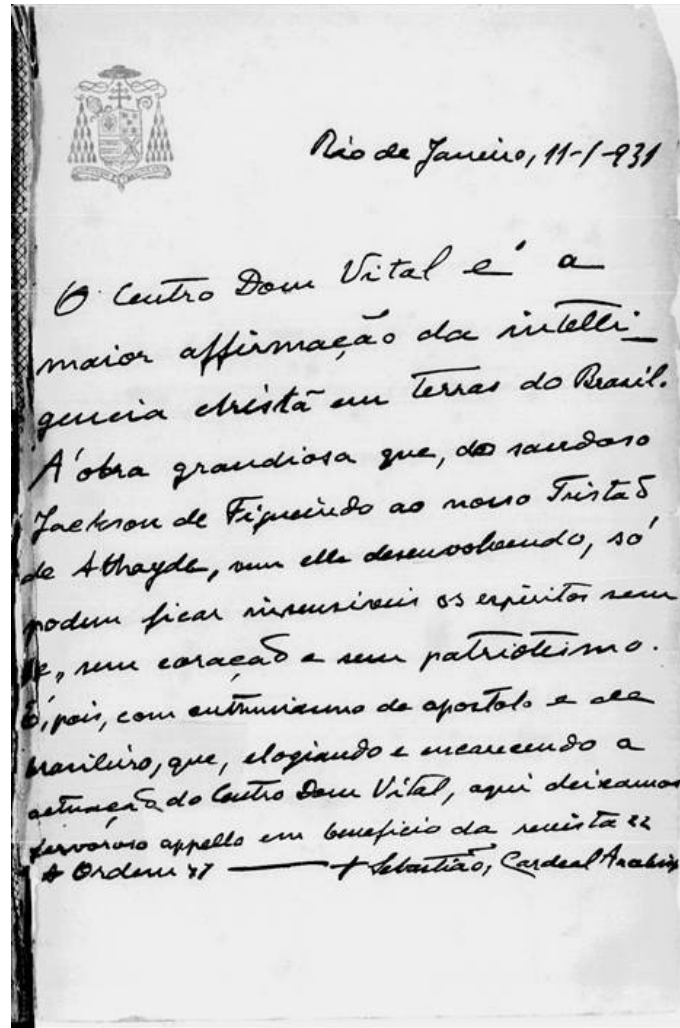 Rio de Janeiro, 11-1-931
O Centro Dom Vital é a
maior affirmação da intelli-
gencia christã em terras do Brasil.
Á obra grandiosa que, do saudoso
Jackson de Figueiredo ao nosso Tristão
de Athayde, vem elle desenvolvendo, só
podem ficar insensiveis os espiritos sem
fé, sem coração e sem patriotismo.
É, pois, com enthusiasmo de apostolo e de
brasileiro, que, elogiando e encarecendo a
actuação do Centro Dom Vital, aqui deixamos
fervoroso appello em beneficio da revista "
A Ordem" — + Sebastião, Cardeal Arcebispo